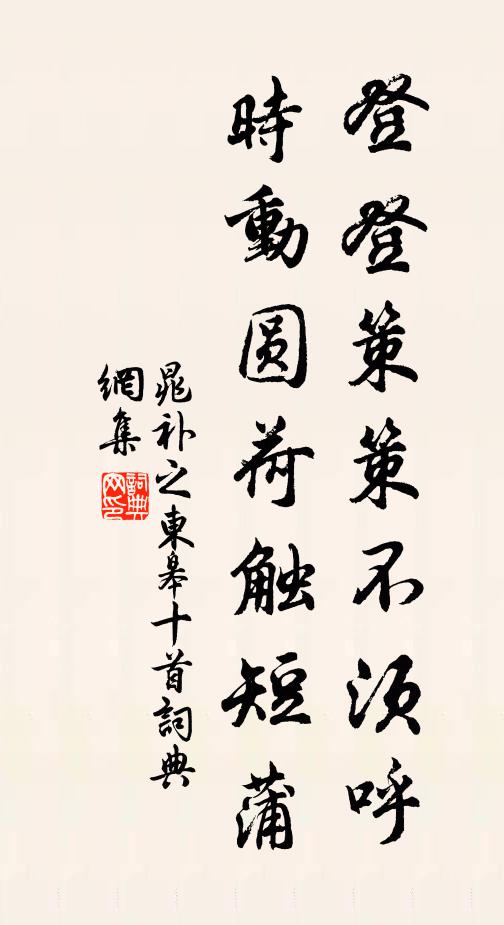 登登策策不须呼
時動圆荷触短蒲
晁补之東皋十首詞典
網集
詞典网印